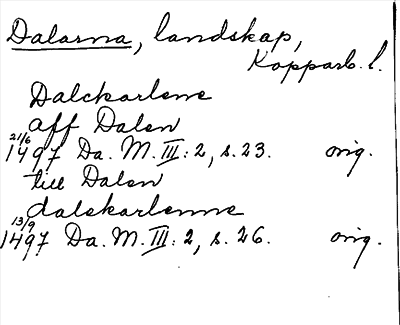 Dalarna, landskap,
Kopparb. l.
Dalckarlene
aff Dalen
21/6 1497 Da. M. III: 2, s. 23. orig.
till Dalen
dalekarlenne
13/9 1497 Da. M. III: 2, s. 26. orig.